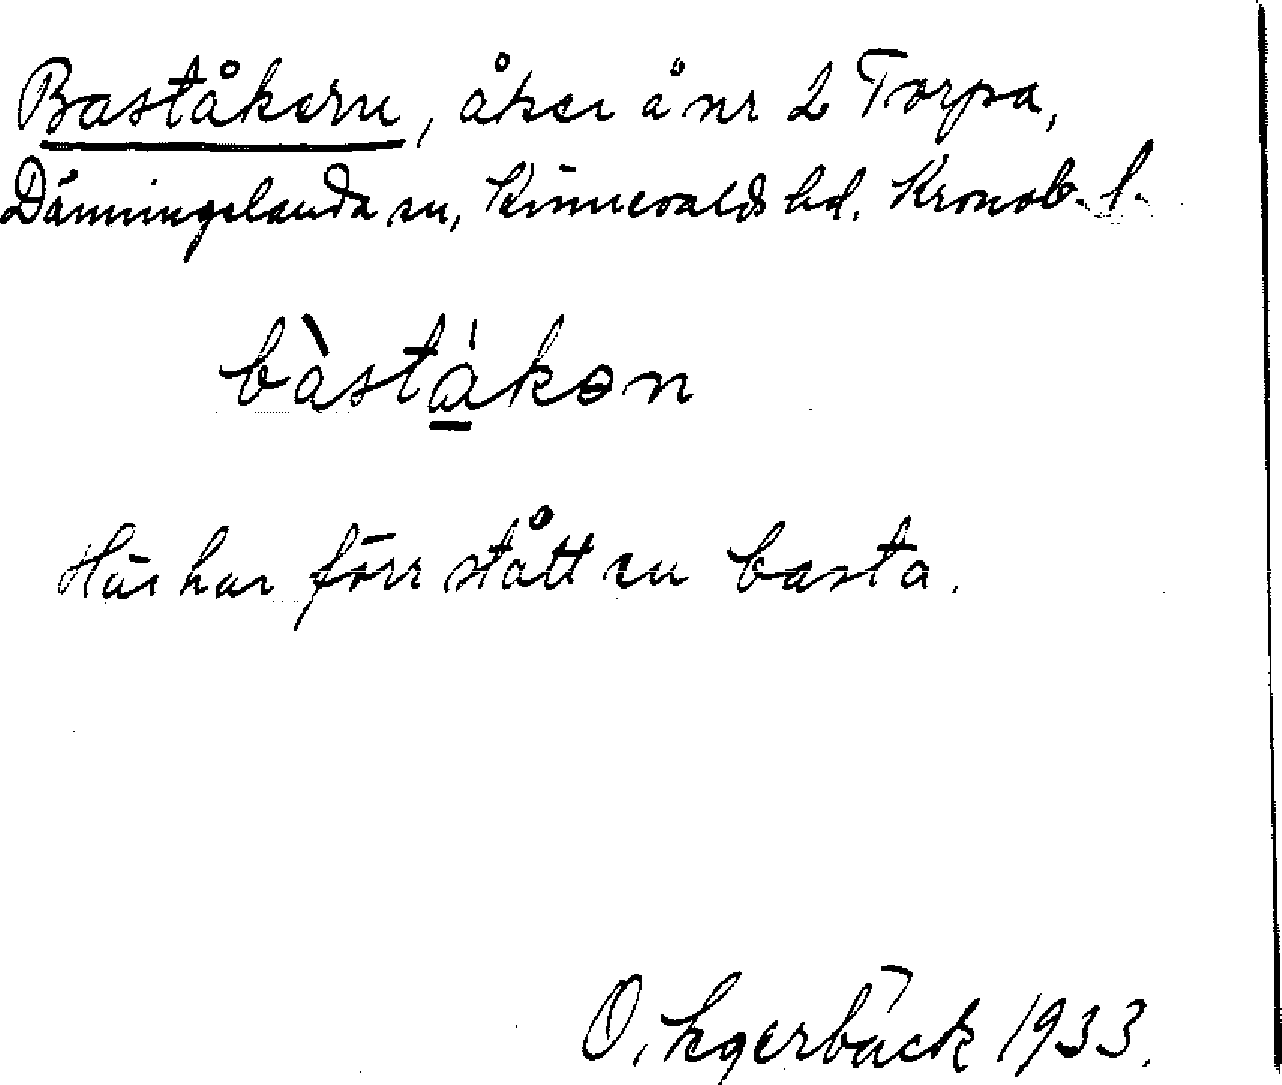 Baståkern, åker å nr 2 Torpa,
Dänningelanda sn, Kinnevalds hd. Kronob. l.
bàstákən
Här har förr stått en basta.
O. Egerbäck 1933.